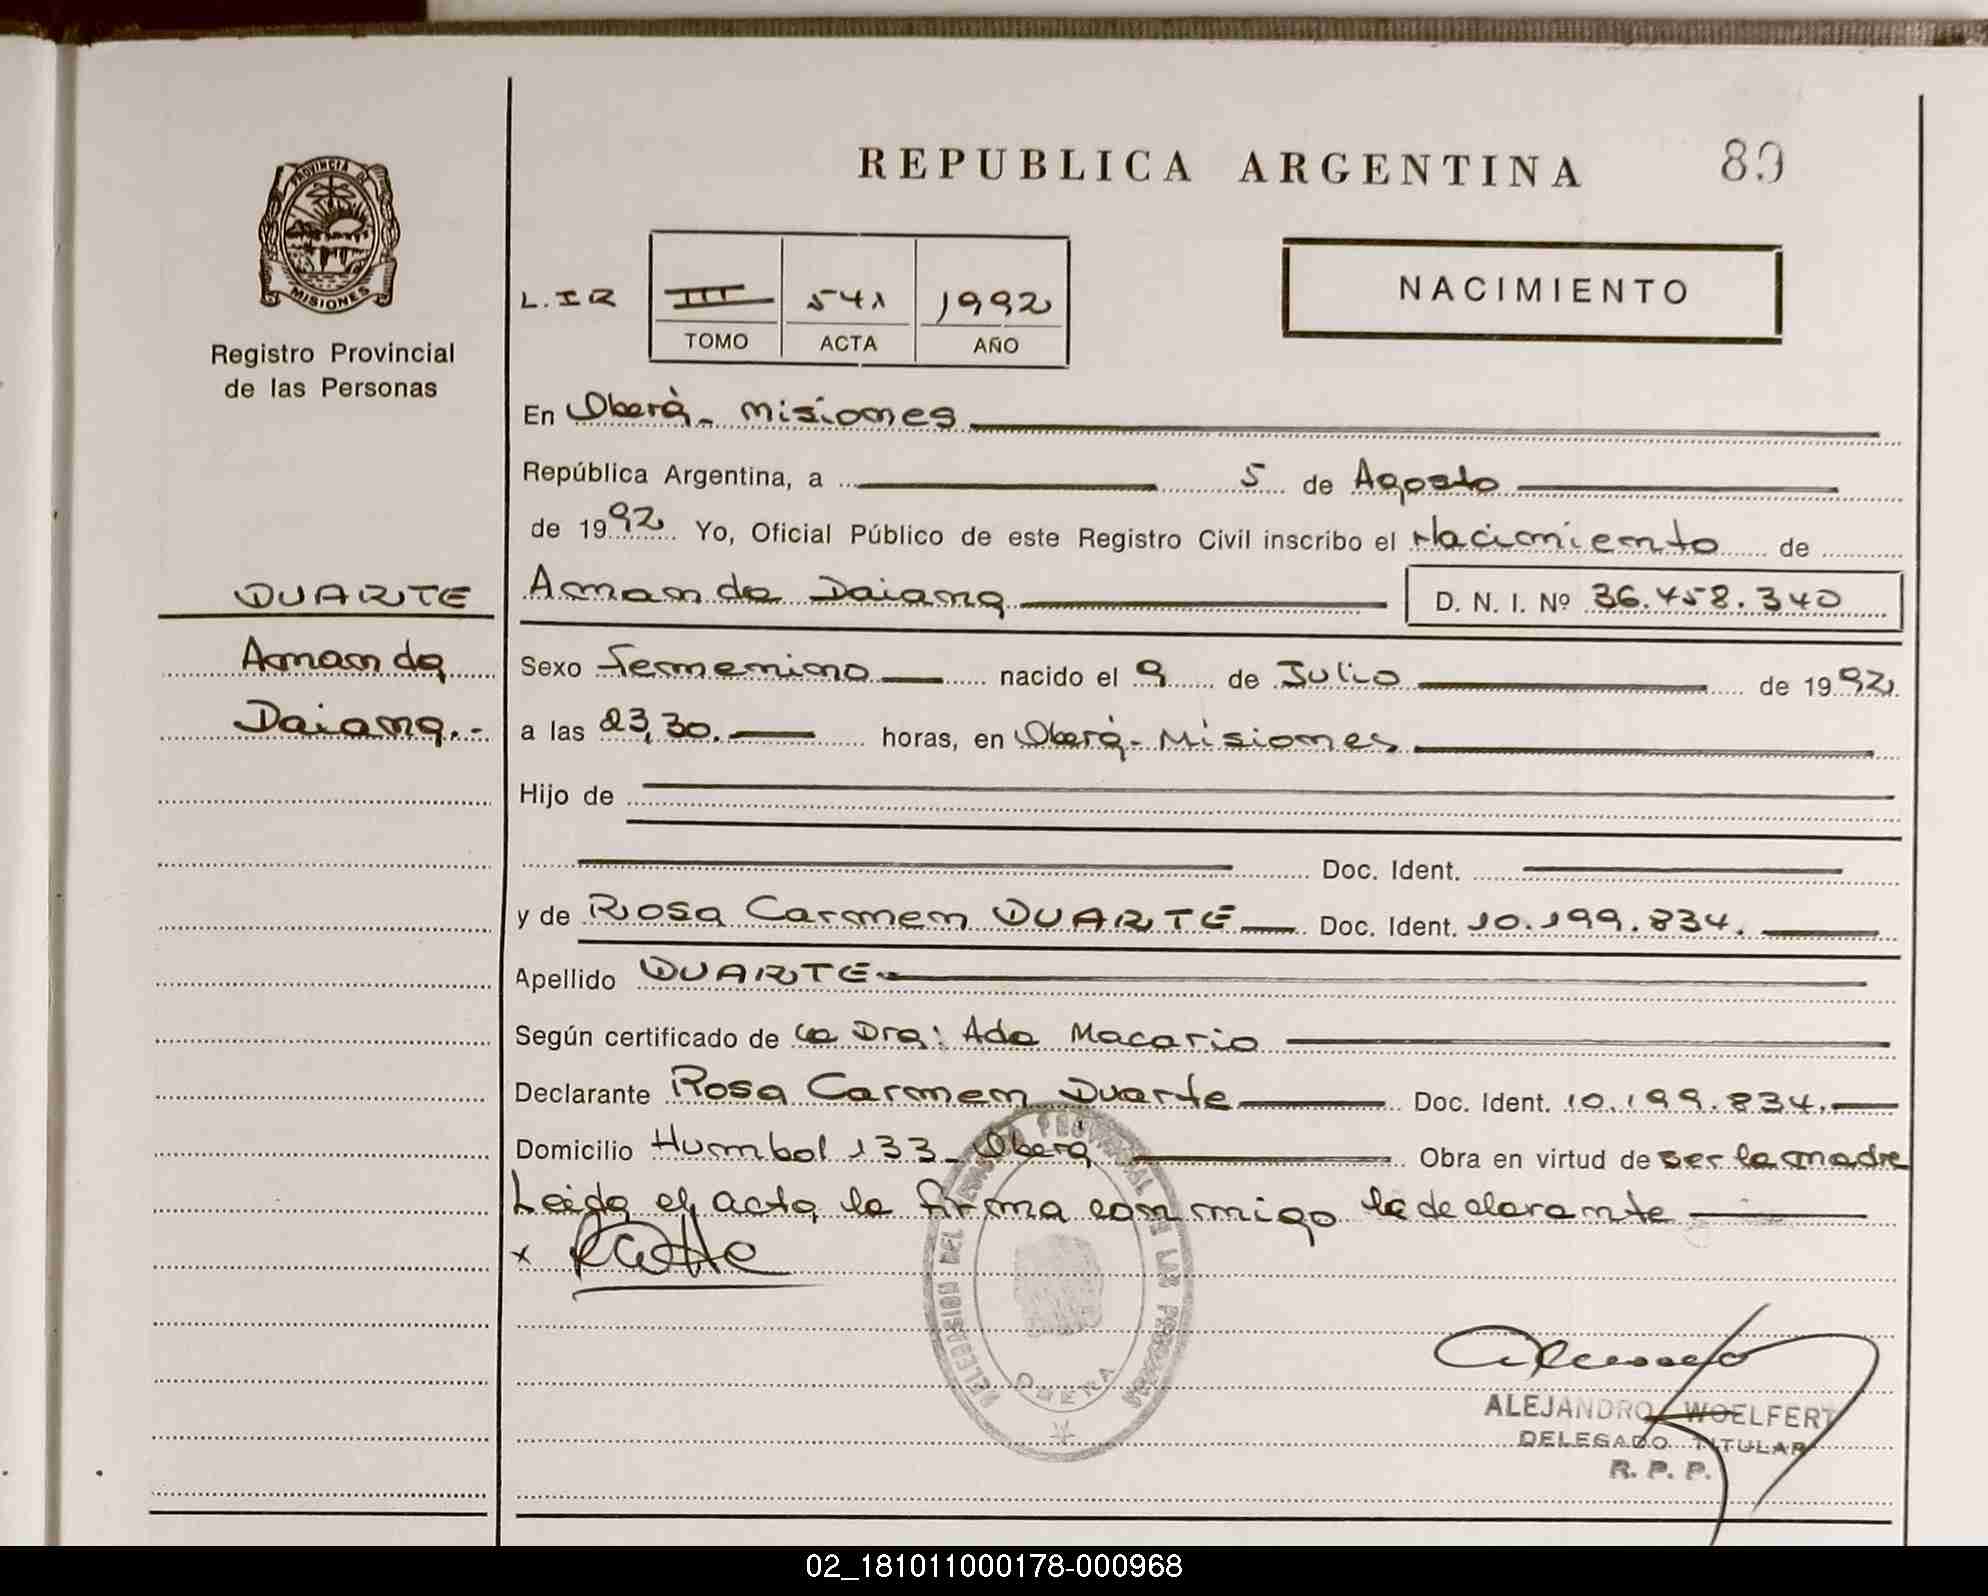 REPUBLICA ARGENTINA
89
PROVINCIA DE
MISIONES
Registro Provincial
de las Personas
L. I R
III 541 1992
TOMO ACTA AÑO
NACIMIENTO
En Oberá - Misiones
República Argentina, a 5 de Agosto
de 1992 Yo, Oficial Público de este Registro Civil inscribo el Nacimiento de
DUARTE
Amanda Daiana D. N. I. Nº 36.458.340
Amanda
Sexo femenino nacido el 9 de Julio de 1992
Daiana.-
a las 23,30. horas, en Oberá - Misiones
Hijo de
Doc. Ident.
y de Rosa Carmen DUARTE Doc. Ident. 10.199.834.
Apellido DUARTE
Según certificado de la Dra: Ada Macario
Declarante Rosa Carmen Duarte Doc. Ident. 10.199.834.
Domicilio Humbol 133 - Oberá Obra en virtud de ser la madre
Leida el acta, la firma conmigo la declarante
x
DELEGACION DEL REGISTRO PROVINCIAL DE LAS PERSONAS
OBERA
ALEJANDRO WOELFERT
DELEGADO TITULAR
R. P. P.
02_181011000178-000968